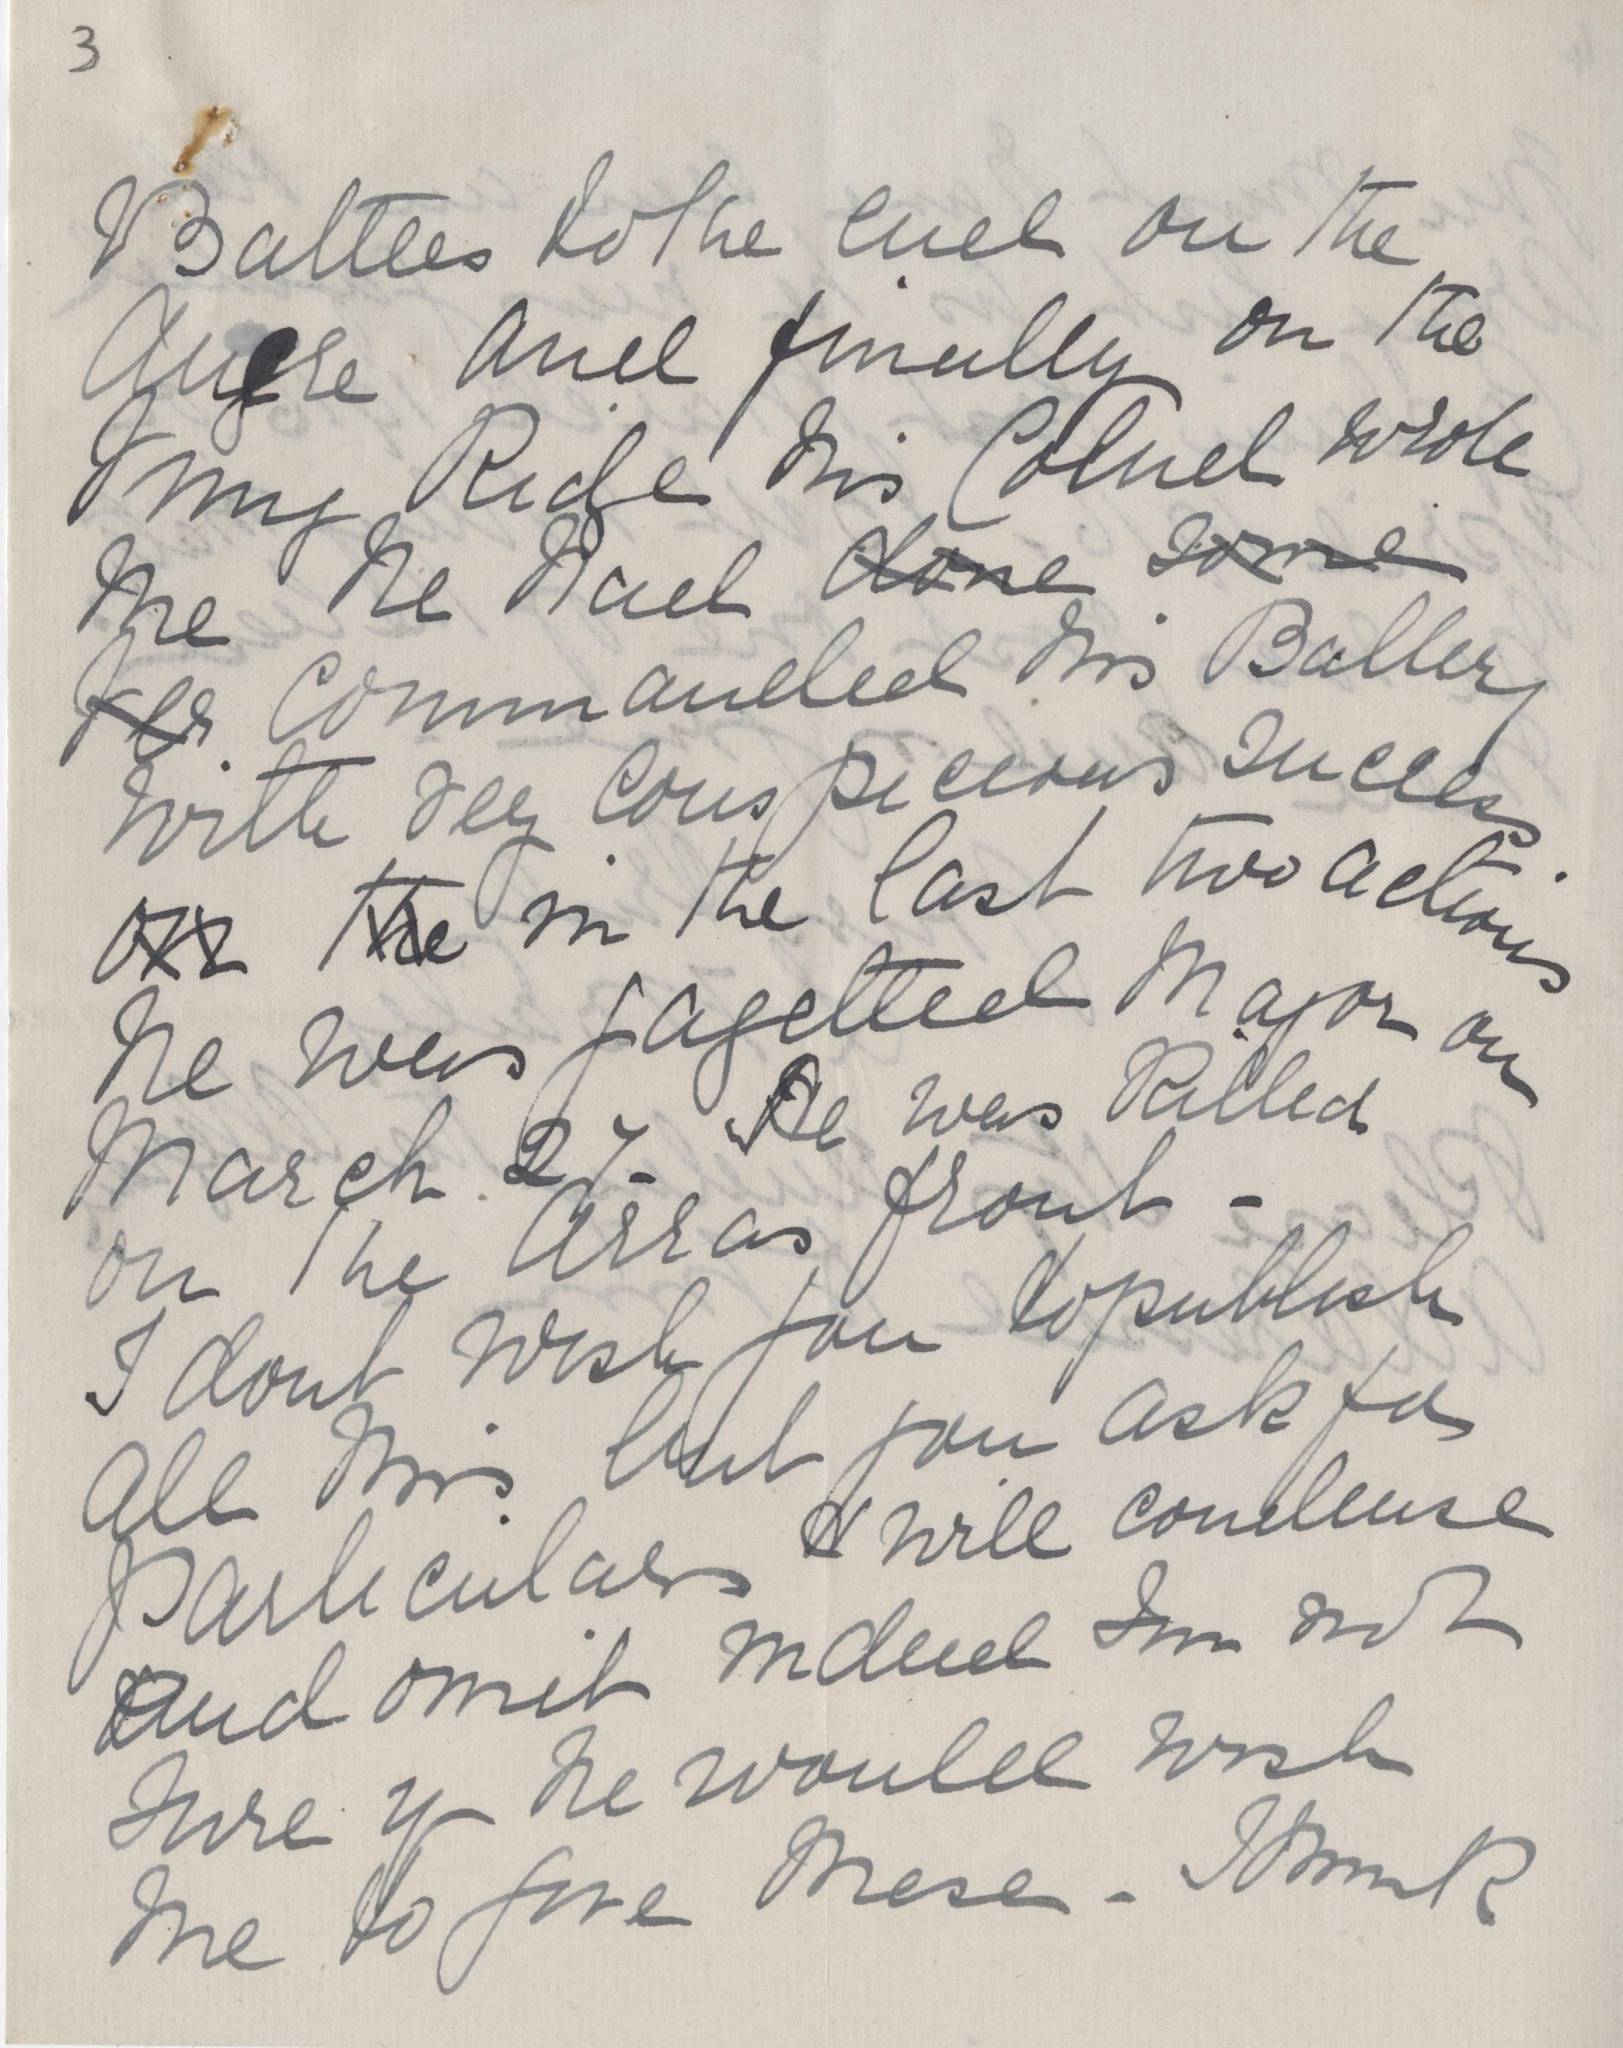 3
Battles to the end on the
Ancre and finally on the
Vimy Ridge his Colonel wrote
me he had done some
ver commanded his Battery
with very conspicuous success
on the in the last two actions
he was gazetted Major on
March 27. He was killed
on the Arras front -
I dont wish you to publish
all this but you ask for
particulars & will condense
and omit indeed Im not
sure if he would wish
me to give these - I think